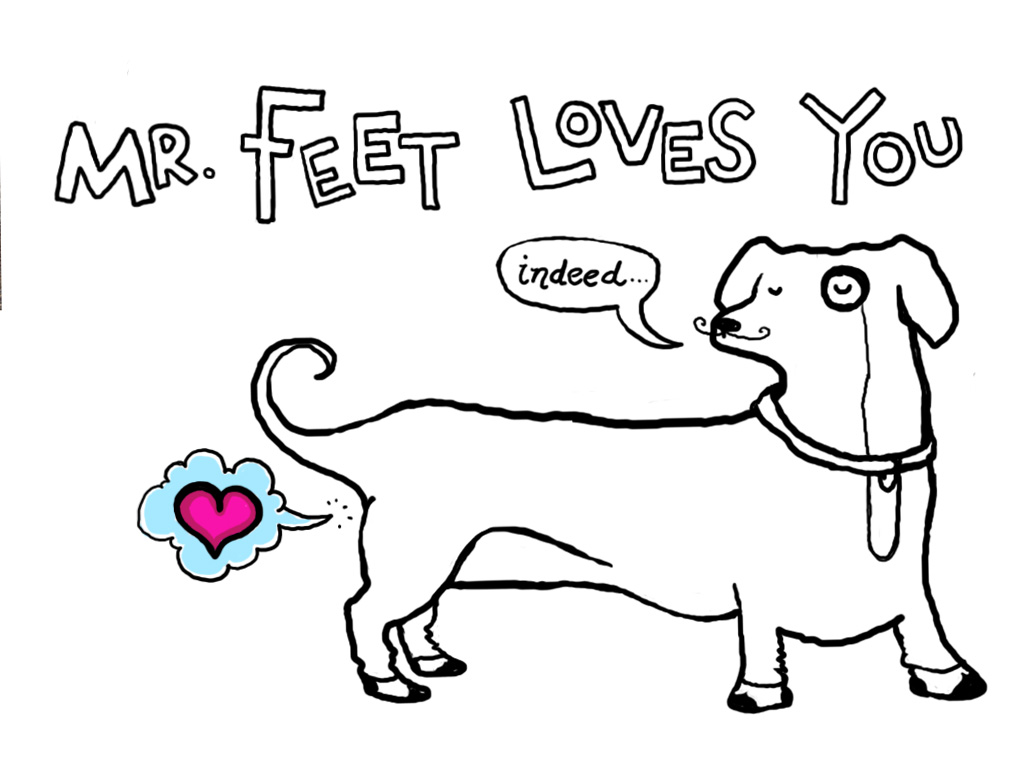 MR. FEET LOVES YOU
indeed...